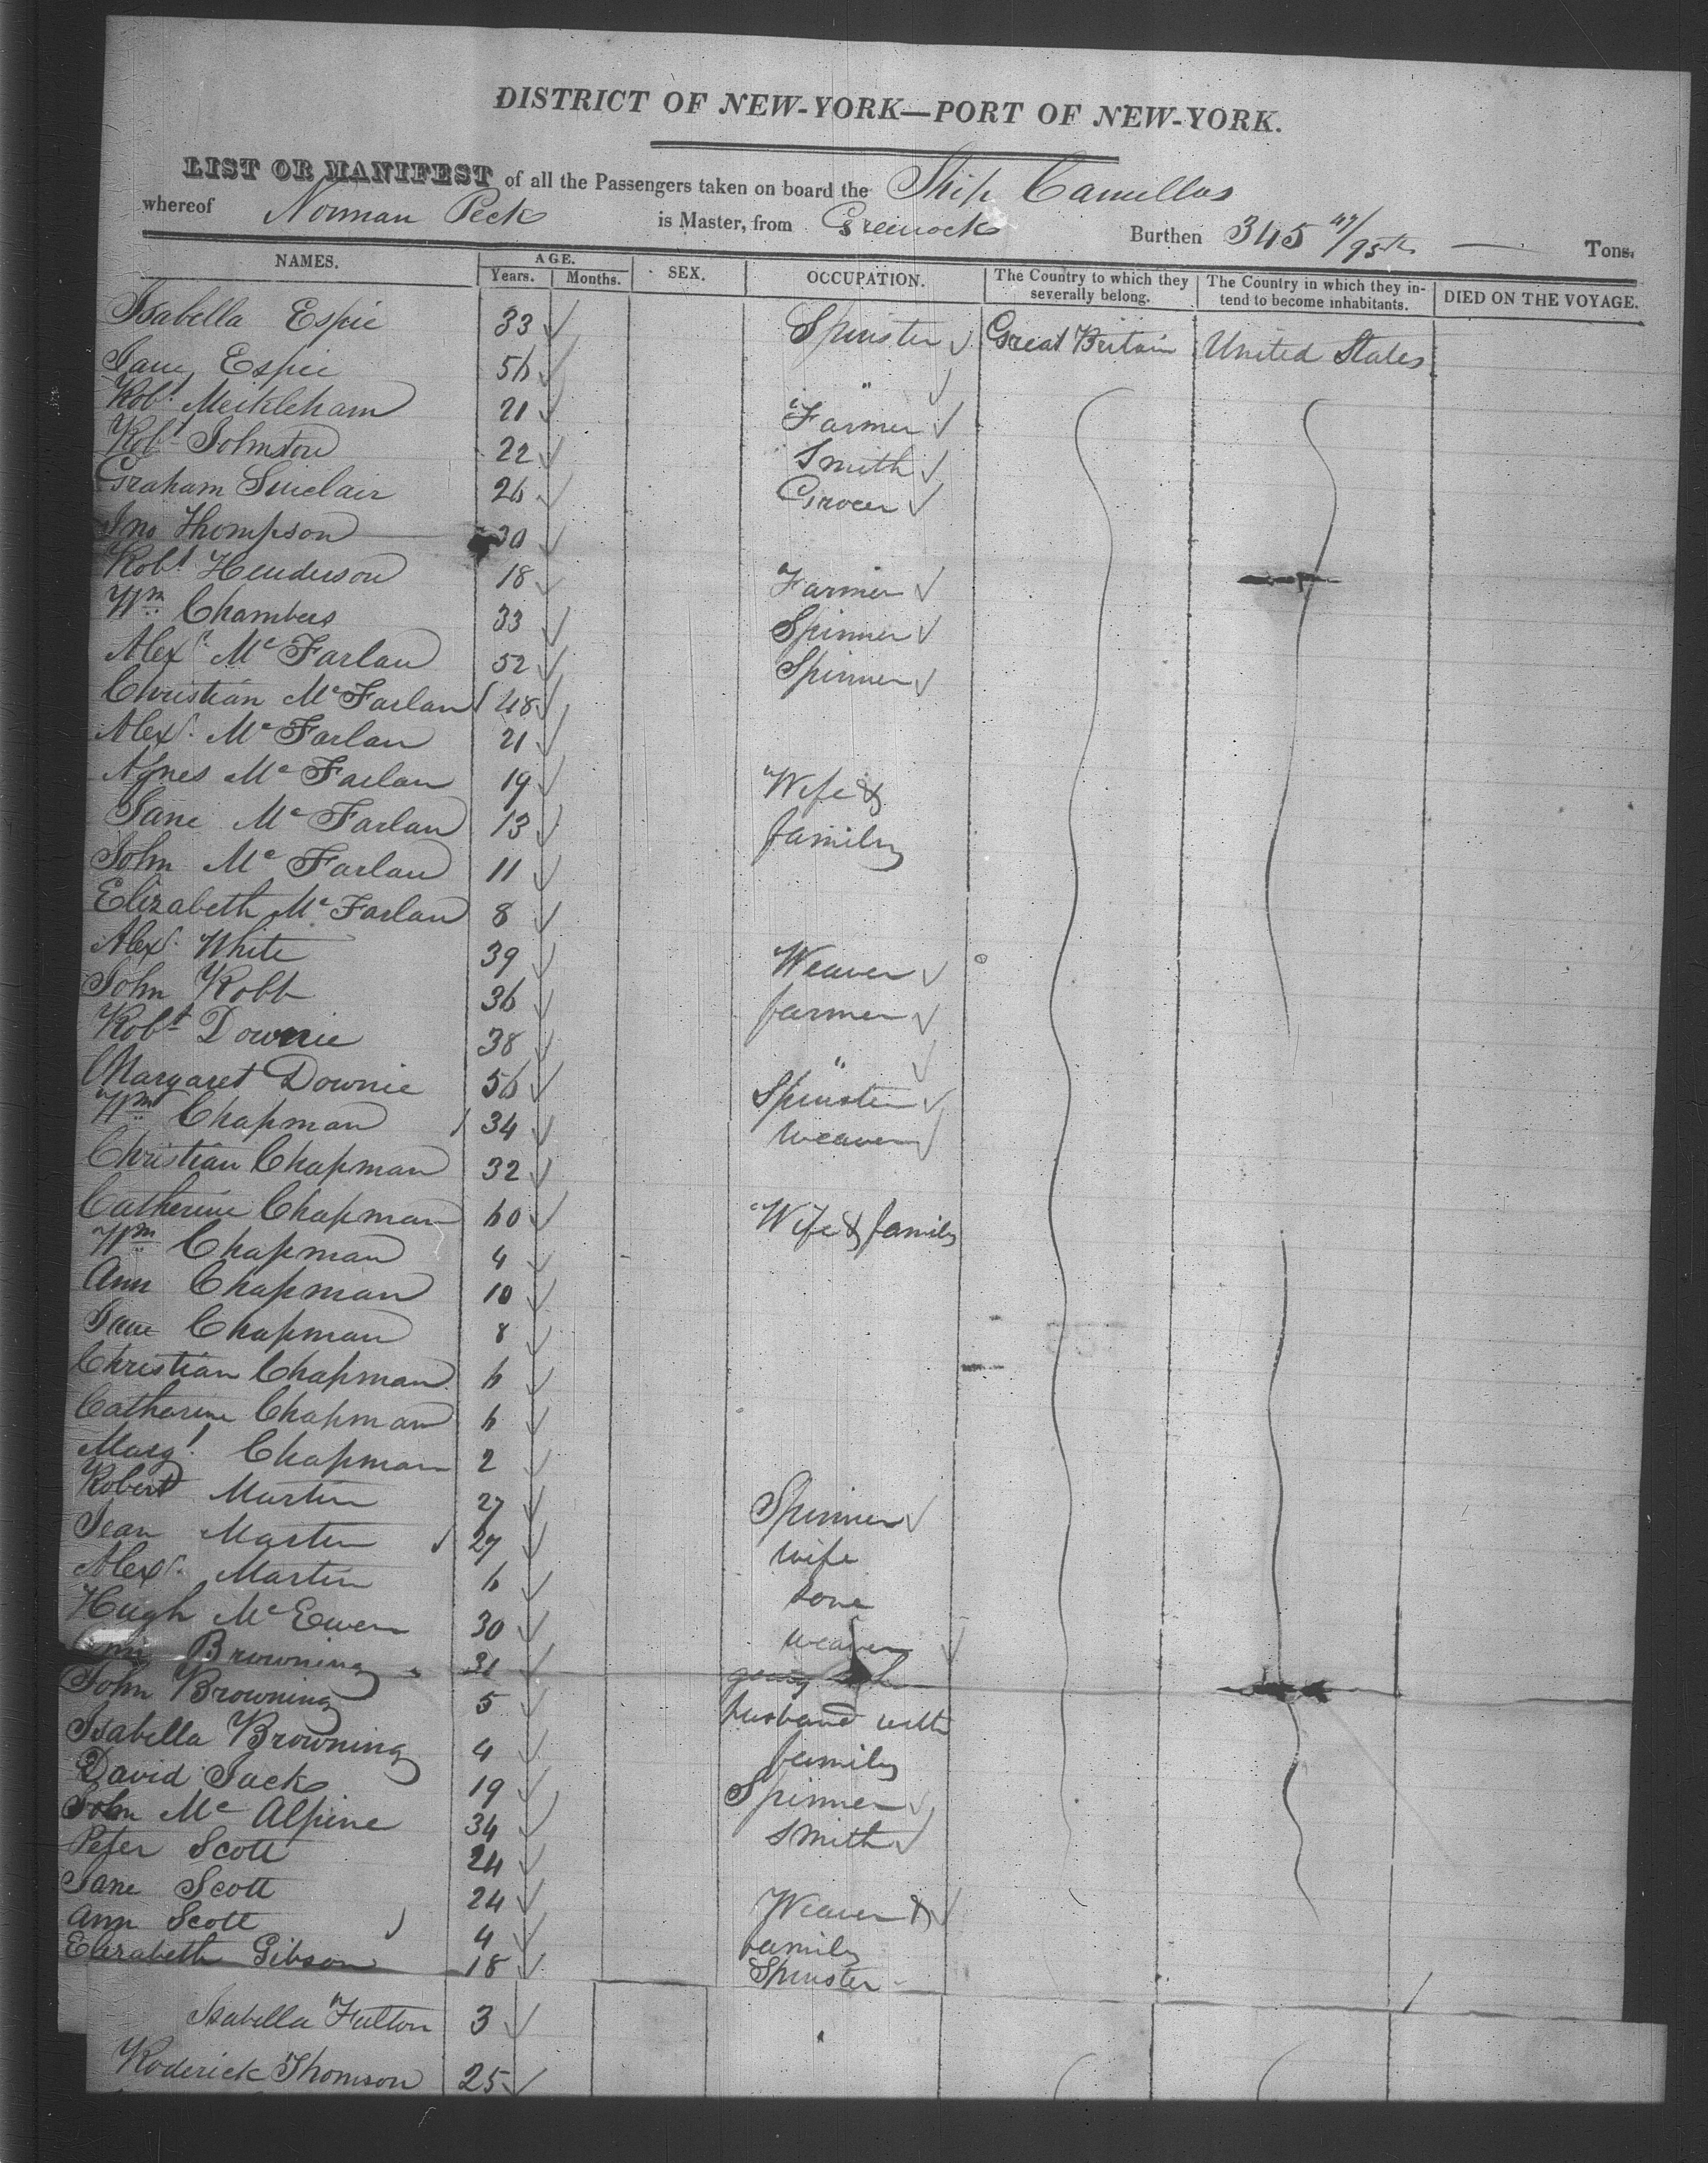 DISTRICT OF NEW-YORK—PORT OF NEW-YORK.
LIST OR MANIFEST of all the Passengers taken on board the Ship Camillus
whereof Norman Peck is Master, from Greenock Burthen 345 47/95th — Tons.
NAMES. AGE. Years. Months. SEX. OCCUPATION. The Country to which they severally belong. The Country in which they intend to become inhabitants. DIED ON THE VOYAGE.
Isabella Espie 33 Spinster Great Britain United States
Jane Espie 56 "
Robt Meikleham 21 Farmer
Robt Johnston 22 Smith
Graham Sinclair 26 Grocer
Jno Thompson 30
Robt Henderson 18 Farmer
Wm Chambers 33 Spinner
Alexr McFarlan 52 Spinner
Christian McFarlan 48
Alexr McFarlan 21
Agnes McFarlan 19 Wife &
Jane McFarlan 13 family
John McFarlan 11
Elizabeth McFarlan 8
Alexr White 39 Weaver
John Robb 36 farmer
Robt Downie 38 "
Margaret Downie 56 Spinster
Wm Chapman 34 weaver
Christian Chapman 32
Catherine Chapman 60 Wife & family
Wm Chapman 4
Ann Chapman 10
Jane Chapman 8
Christian Chapman 6
Catharine Chapman 6
Margt Chapman 2
Robert Martin 27 Spinner
Jean Martin 27 wife
Alexr Martin 6 sone
Hugh McEwen 30 weaver
Browning 31 going
John Browning 5 husband with
Isabella Browning 4 family
David Jack 19 Spinner
John McAlpine 34 Smith
Peter Scott 24
Jane Scott 24 Weaver &
Ann Scott 4 family
Elizabeth Gibson 18 Spinster
Isabella Fulton 3
Roderick Thomson 25